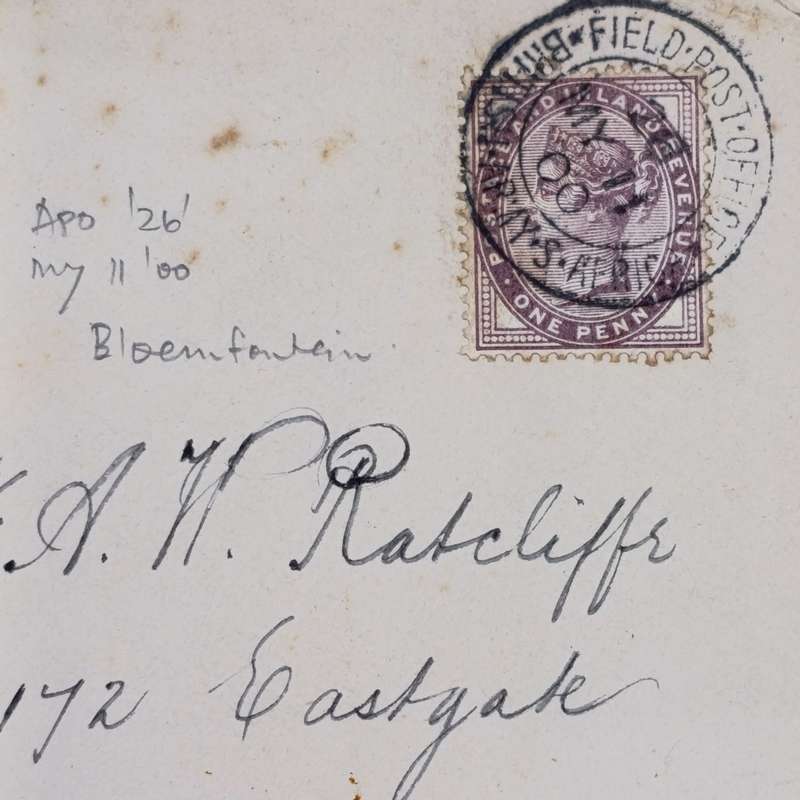 BRITISH ARMY·S·AFRICA
FIELD·POST·OFFICE
MY 11
00
POSTAGE AND INLAND REVENUE
ONE PENNY
Apo '26'
my 11 '00
Bloemfontein.
A. W. Ratcliffe
172 Eastgate